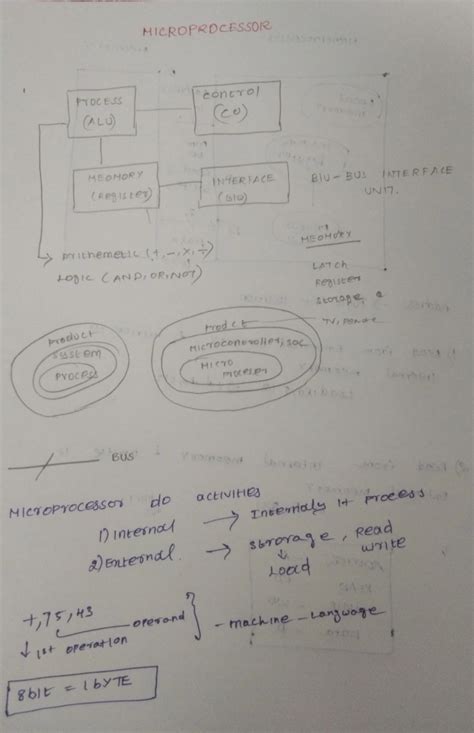 MICROPROCESSOR
PROCESS
(ALU)
control
(CU)
MEOMORY
(REGISTER)
INTERFACE
(BIU)
BIU - BUS INTERFACE
UNIT.
Arithemetic (+, -, x, ÷)
LOGIC (AND, OR, NOT)
MEOMORY
LATCH
Register
Storage
Product
SYSTEM
PROCESS
Prodct
Microconroller, SOC
MICRO
BUS
MICROPROCESSOR do activities
1) Internal → Internaly it Process
2) External. → Strorage, Read
write
Load
+, 75, 43
operand
1st operation
- Machine - Language
8bit = 1 BYTE